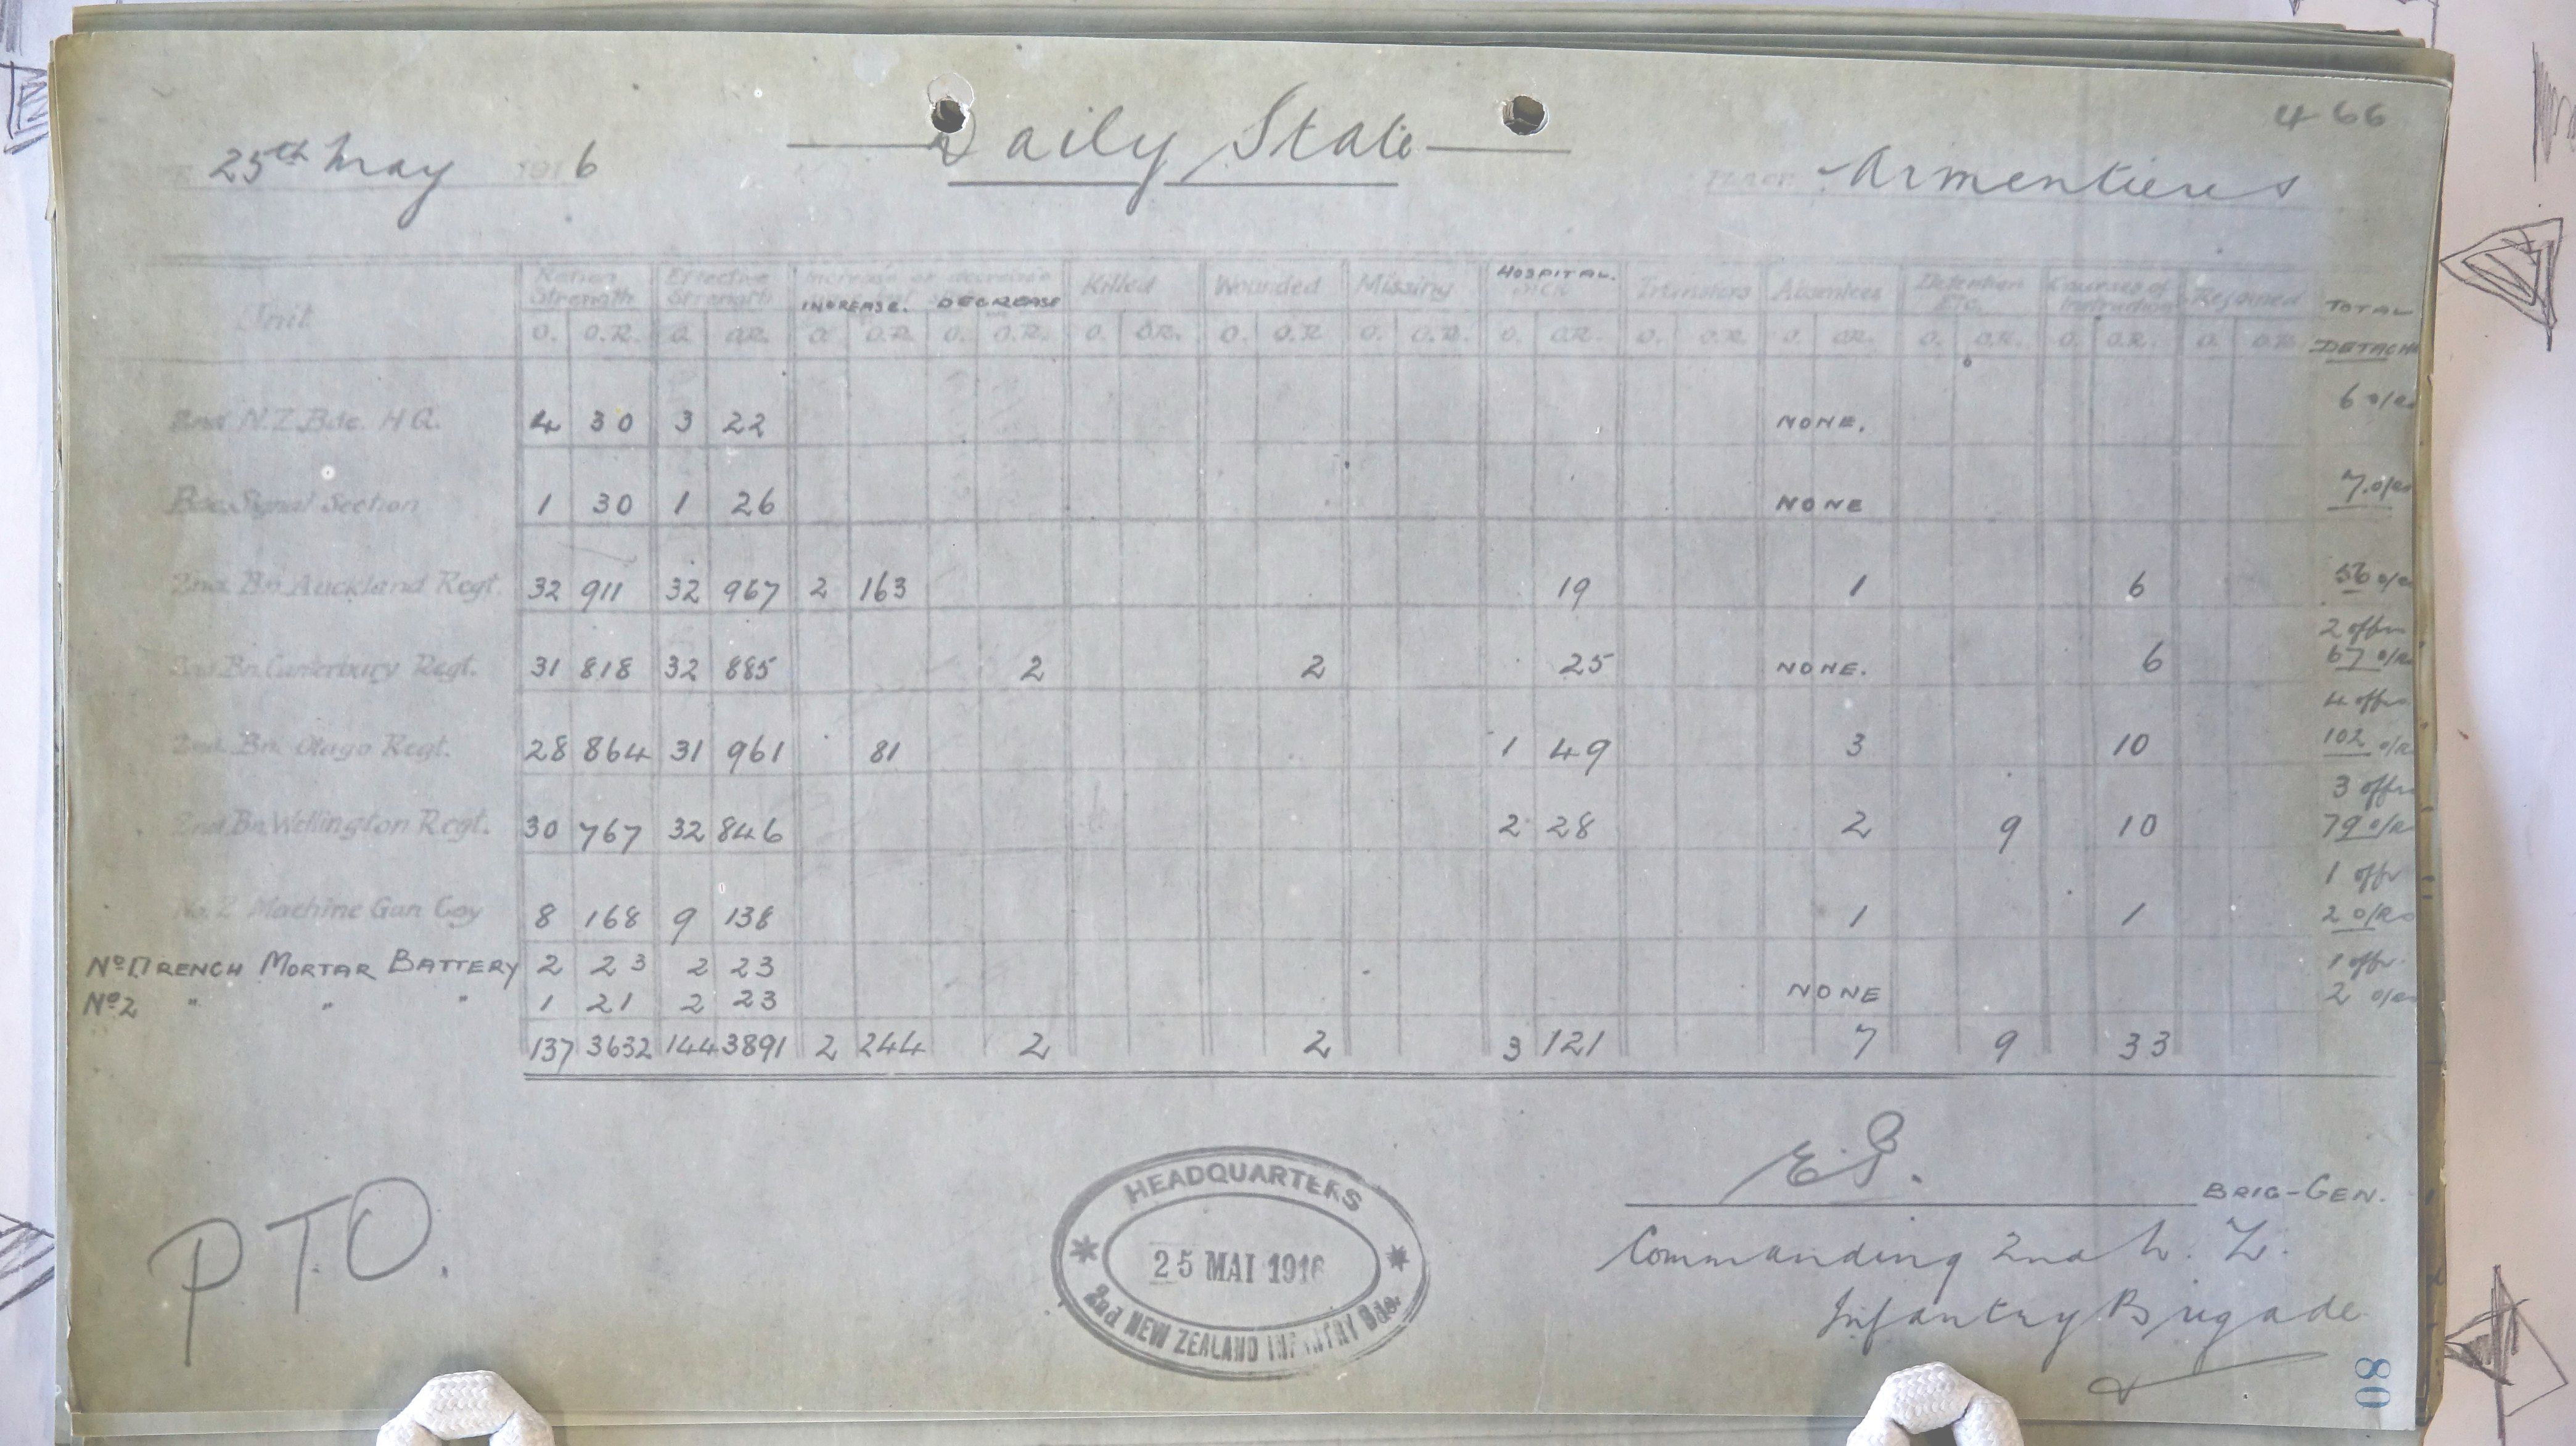 466
25th May 1916 Daily State Place Armentieres
Unit Ration Strength Effective Strength Increase or decrease INCREASE. DECREASE Killed Wounded Missing HOSPITAL. SICK Transfers Absentees Detention Etc. Courses of Instruction Rejoined TOTAL DETACH
O. O.R. O. O.R. O. O.R. O. O.R. O. O.R. O. O.R. O. O.R. O. O.R. O. O.R. O. O.R. O. O.R. O. O.R. O. O.R.
2nd N.Z. Bde. H.Q. 4 30 3 22 NONE. 6 o/rs
Bde. Signal Section 1 30 1 26 NONE 7 o/rs
2nd Bn Auckland Regt. 32 911 32 967 2 163 19 1 6 56 o/rs
2 offrs
2nd Bn Canterbury Regt. 31 818 32 885 2 2 25 NONE. 6 67 o/rs
4 offrs
2nd Bn Otago Regt. 28 864 31 961 81 1 49 3 10 102 o/rs
3 offrs
2nd Bn Wellington Regt. 30 767 32 846 2 28 2 9 10 79 o/rs
1 offr
No. 2 Machine Gun Coy 8 168 9 138 1 1 2 o/Rs
No 1 TRENCH MORTAR BATTERY 2 23 2 23 1 offr
No 2 " " " 1 21 2 23 NONE 2 o/rs
137 3632 144 3891 2 244 2 2 3 121 7 9 33
BRIG-GEN.
Commanding 2nd N. Z.
Infantry Brigade
P.T.O.
HEADQUARTERS
25 MAI 1916
2nd NEW ZEALAND INFANTRY Bde.
80